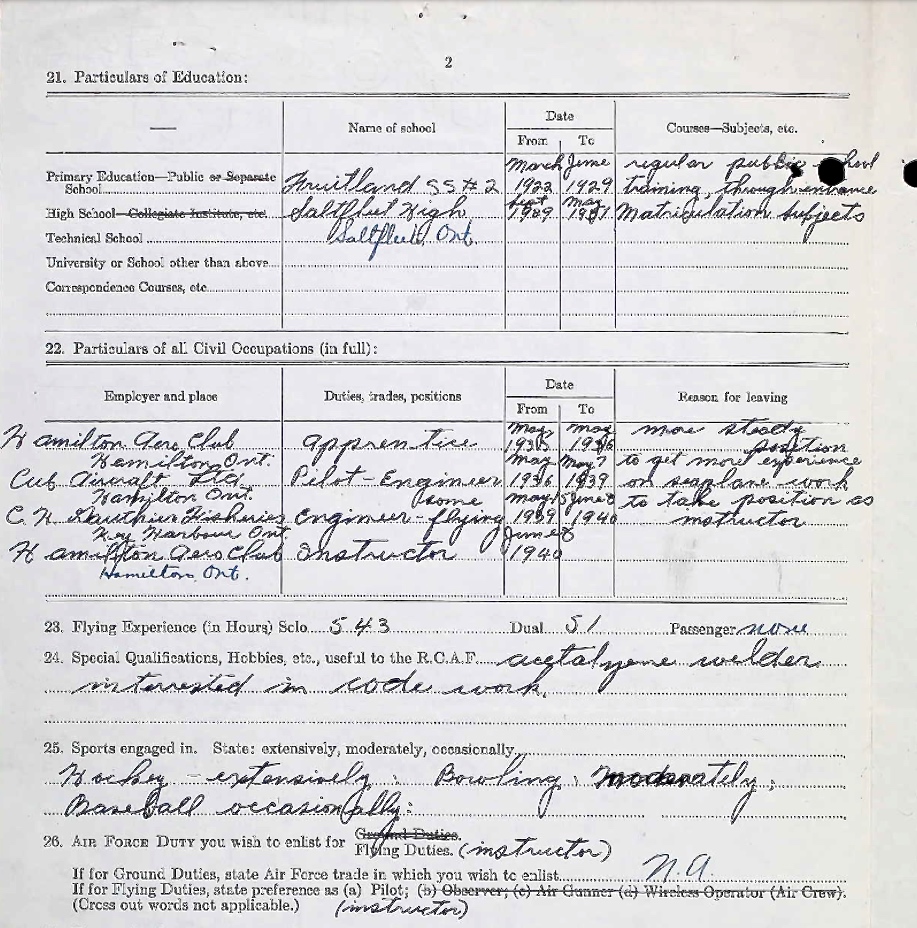 2
21. Particulars of Education:
Name of school
Date
From To
Courses—Subjects, etc.
March June regular public school
Primary Education—Public or Separate
School Fruitland SS # 2 1922 1929 training, through entrance
Sept May
High School—Collegiate Institute, etc. Saltfleet High 1929 Matriculation subjects
Technical School Saltfleet, Ont.
University or School other than above
Correspondence Courses, etc.
22. Particulars of all Civil Occupations (in full):
Employer and place
Duties, trades, positions
Date
From To
Reason for leaving
May May more steady
Hamilton Aero Club apprentice 1935 1936 position
Hamilton Ont. May May to get more experience
Cub Aircraft Ltd. Pilot-Engineer 1936 1939 on seaplane work
Hamilton Ont. some May 15 June 8 to take position as
C. W. Gauthier Fisheries Engineer-flying 1939 1940 instructor
Key Harbour Ont June 8
Hamilton Aero Club Instructor 1940
Hamilton, Ont.
23. Flying Experience (in Hours) Solo 543 Dual 51 Passenger none
24. Special Qualifications, Hobbies, etc., useful to the R.C.A.F. acetalyene welder
interrested in code work.
25. Sports engaged in. State: extensively, moderately, occasionally
Hockey - extensively: Bowling: moderately;
Baseball occasionally:
26. AIR FORCE DUTY you wish to enlist for Ground Duties.
Flying Duties. (instructor)
If for Ground Duties, state Air Force trade in which you wish to enlist N.A
If for Flying Duties, state preference as (a) Pilot; (b) Observer; (c) Air Gunner (d) Wireless Operator (Air Crew).
(Cross out words not applicable.) (instructor)